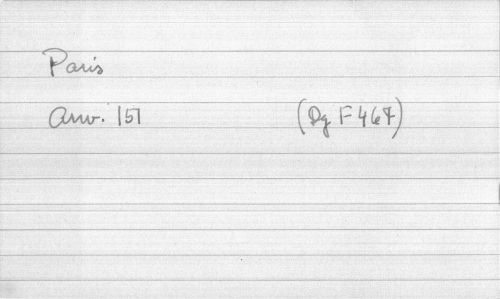 Paris
Arw. 151 (Dg F 467)